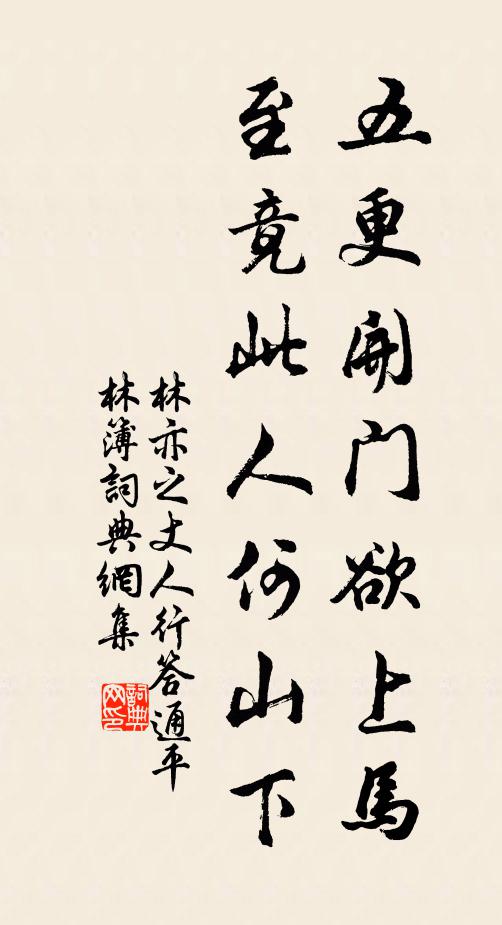 五更開门欲上馬
至竟此人何山下
林亦之丈人行答通平
林簿詞典網集
詞典网印